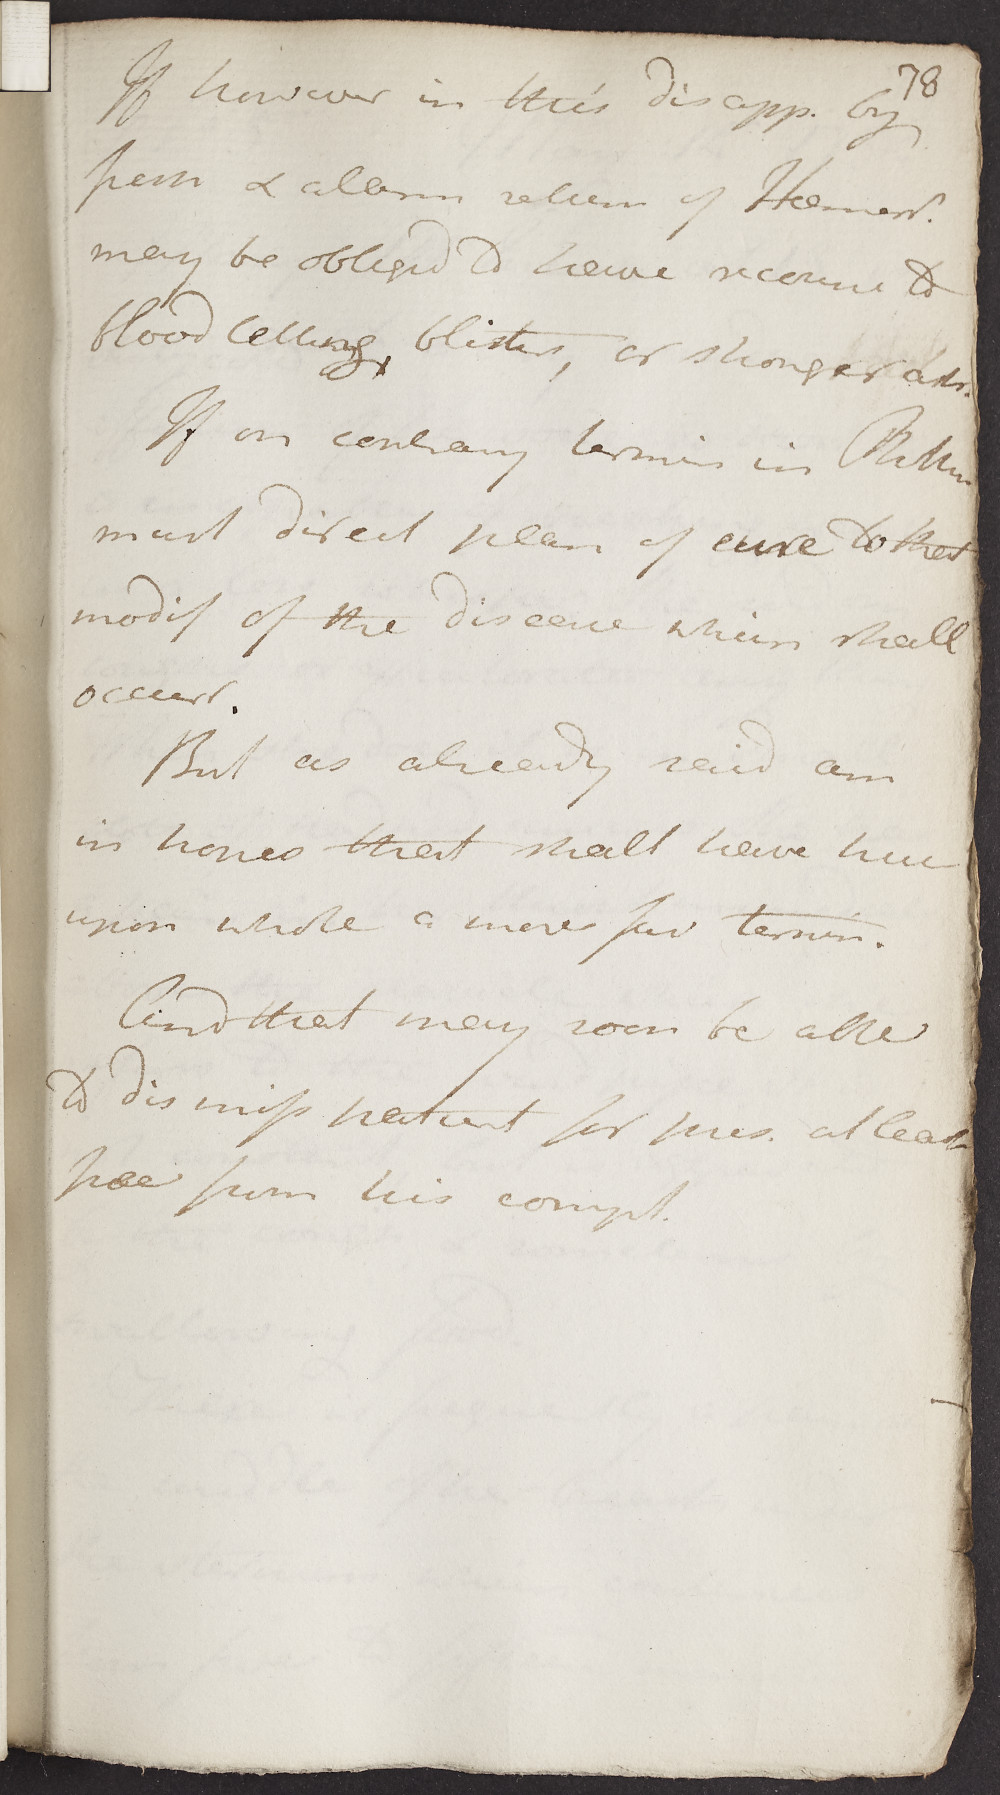 78
If however in this disapp. by
& alarm return of Hæmorr.
may be obliged to have recourse to
blood letting, blisters, or stronger astr.
If on contrary termin in Phthis
must direct plan of cure to that
modif of the disease which shall
occurr.
But as already said am
in hopes that shall have here
upon whole a more fav termin.
And that may soon be able
to dismiss patient for pres. at least
free from his compl.